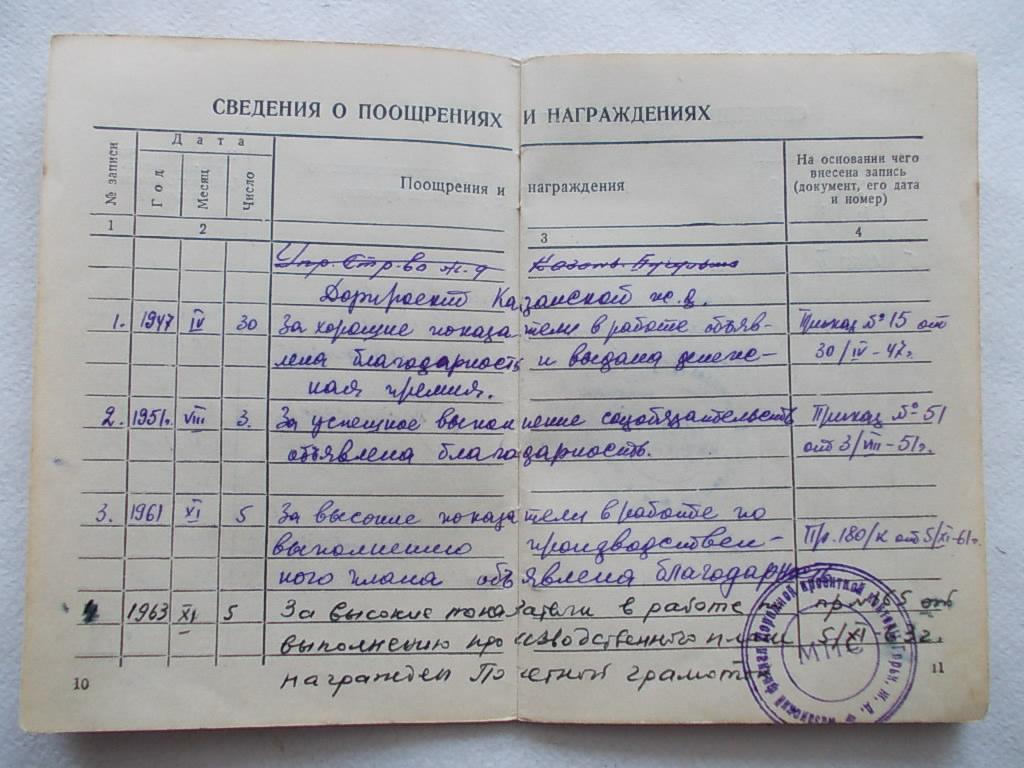 СВЕДЕНИЯ О ПООЩРЕНИЯХ И НАГРАЖДЕНИЯХ
№ записи
Дата
Год
Месяц
Число
Поощрения и награждения
На основании чего
внесена запись
(документ, его дата
и номер)
1 2 3 4
Упр. Стр-ва ж.д Казань
Дорпроект Казанской ж.д.
1. 1947 IV 30 За хорошие показатели в работе объяв- Приказ № 15 от
лена благодарность и выдана денеж- 30/IV-47г.
ная премия.
2. 1951г. VIII 3. За успешное выполнение соцобязательств Приказ № 51
объявлена благодарность. от 3/VIII-51г.
3. 1961 XI 5 За высокие показатели в работе по
выполнению производствен- Пр. 180/к от 5/XI-61г.
ного плана объявлена благодарность
4 1963 XI 5 За высокие показатели в работе по пр № 165 от
выполнению производственного плана 5/XI-63г.
награжден Почетной грамотой
МПС
10
11